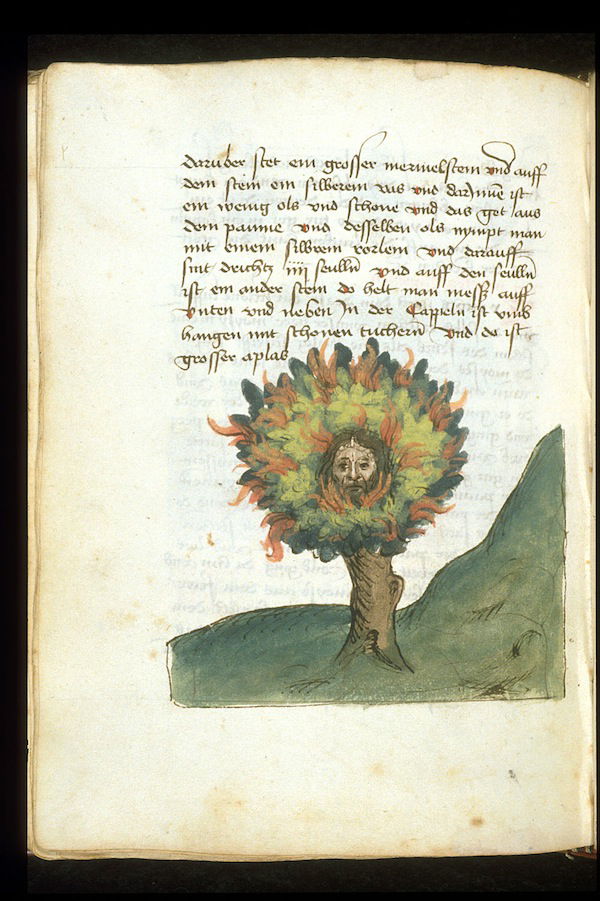 daruber stet ein grosser mermelstein vnd auff
dem stein ein silberein vas vnd darJnne ist
ein wenig ols vnd schone vnd das get aus
dem paume vnd desselben ols nympt man
mit einem silbrein rorlein vnd darauff
sint iiii seulln vnd auff den seulln
ist ein ander stein do helt man messz auff
vnten vnd neben Jn der Cappeln ist vmb
hangen mit schonen tuchern vnd do ist
grosser aplas